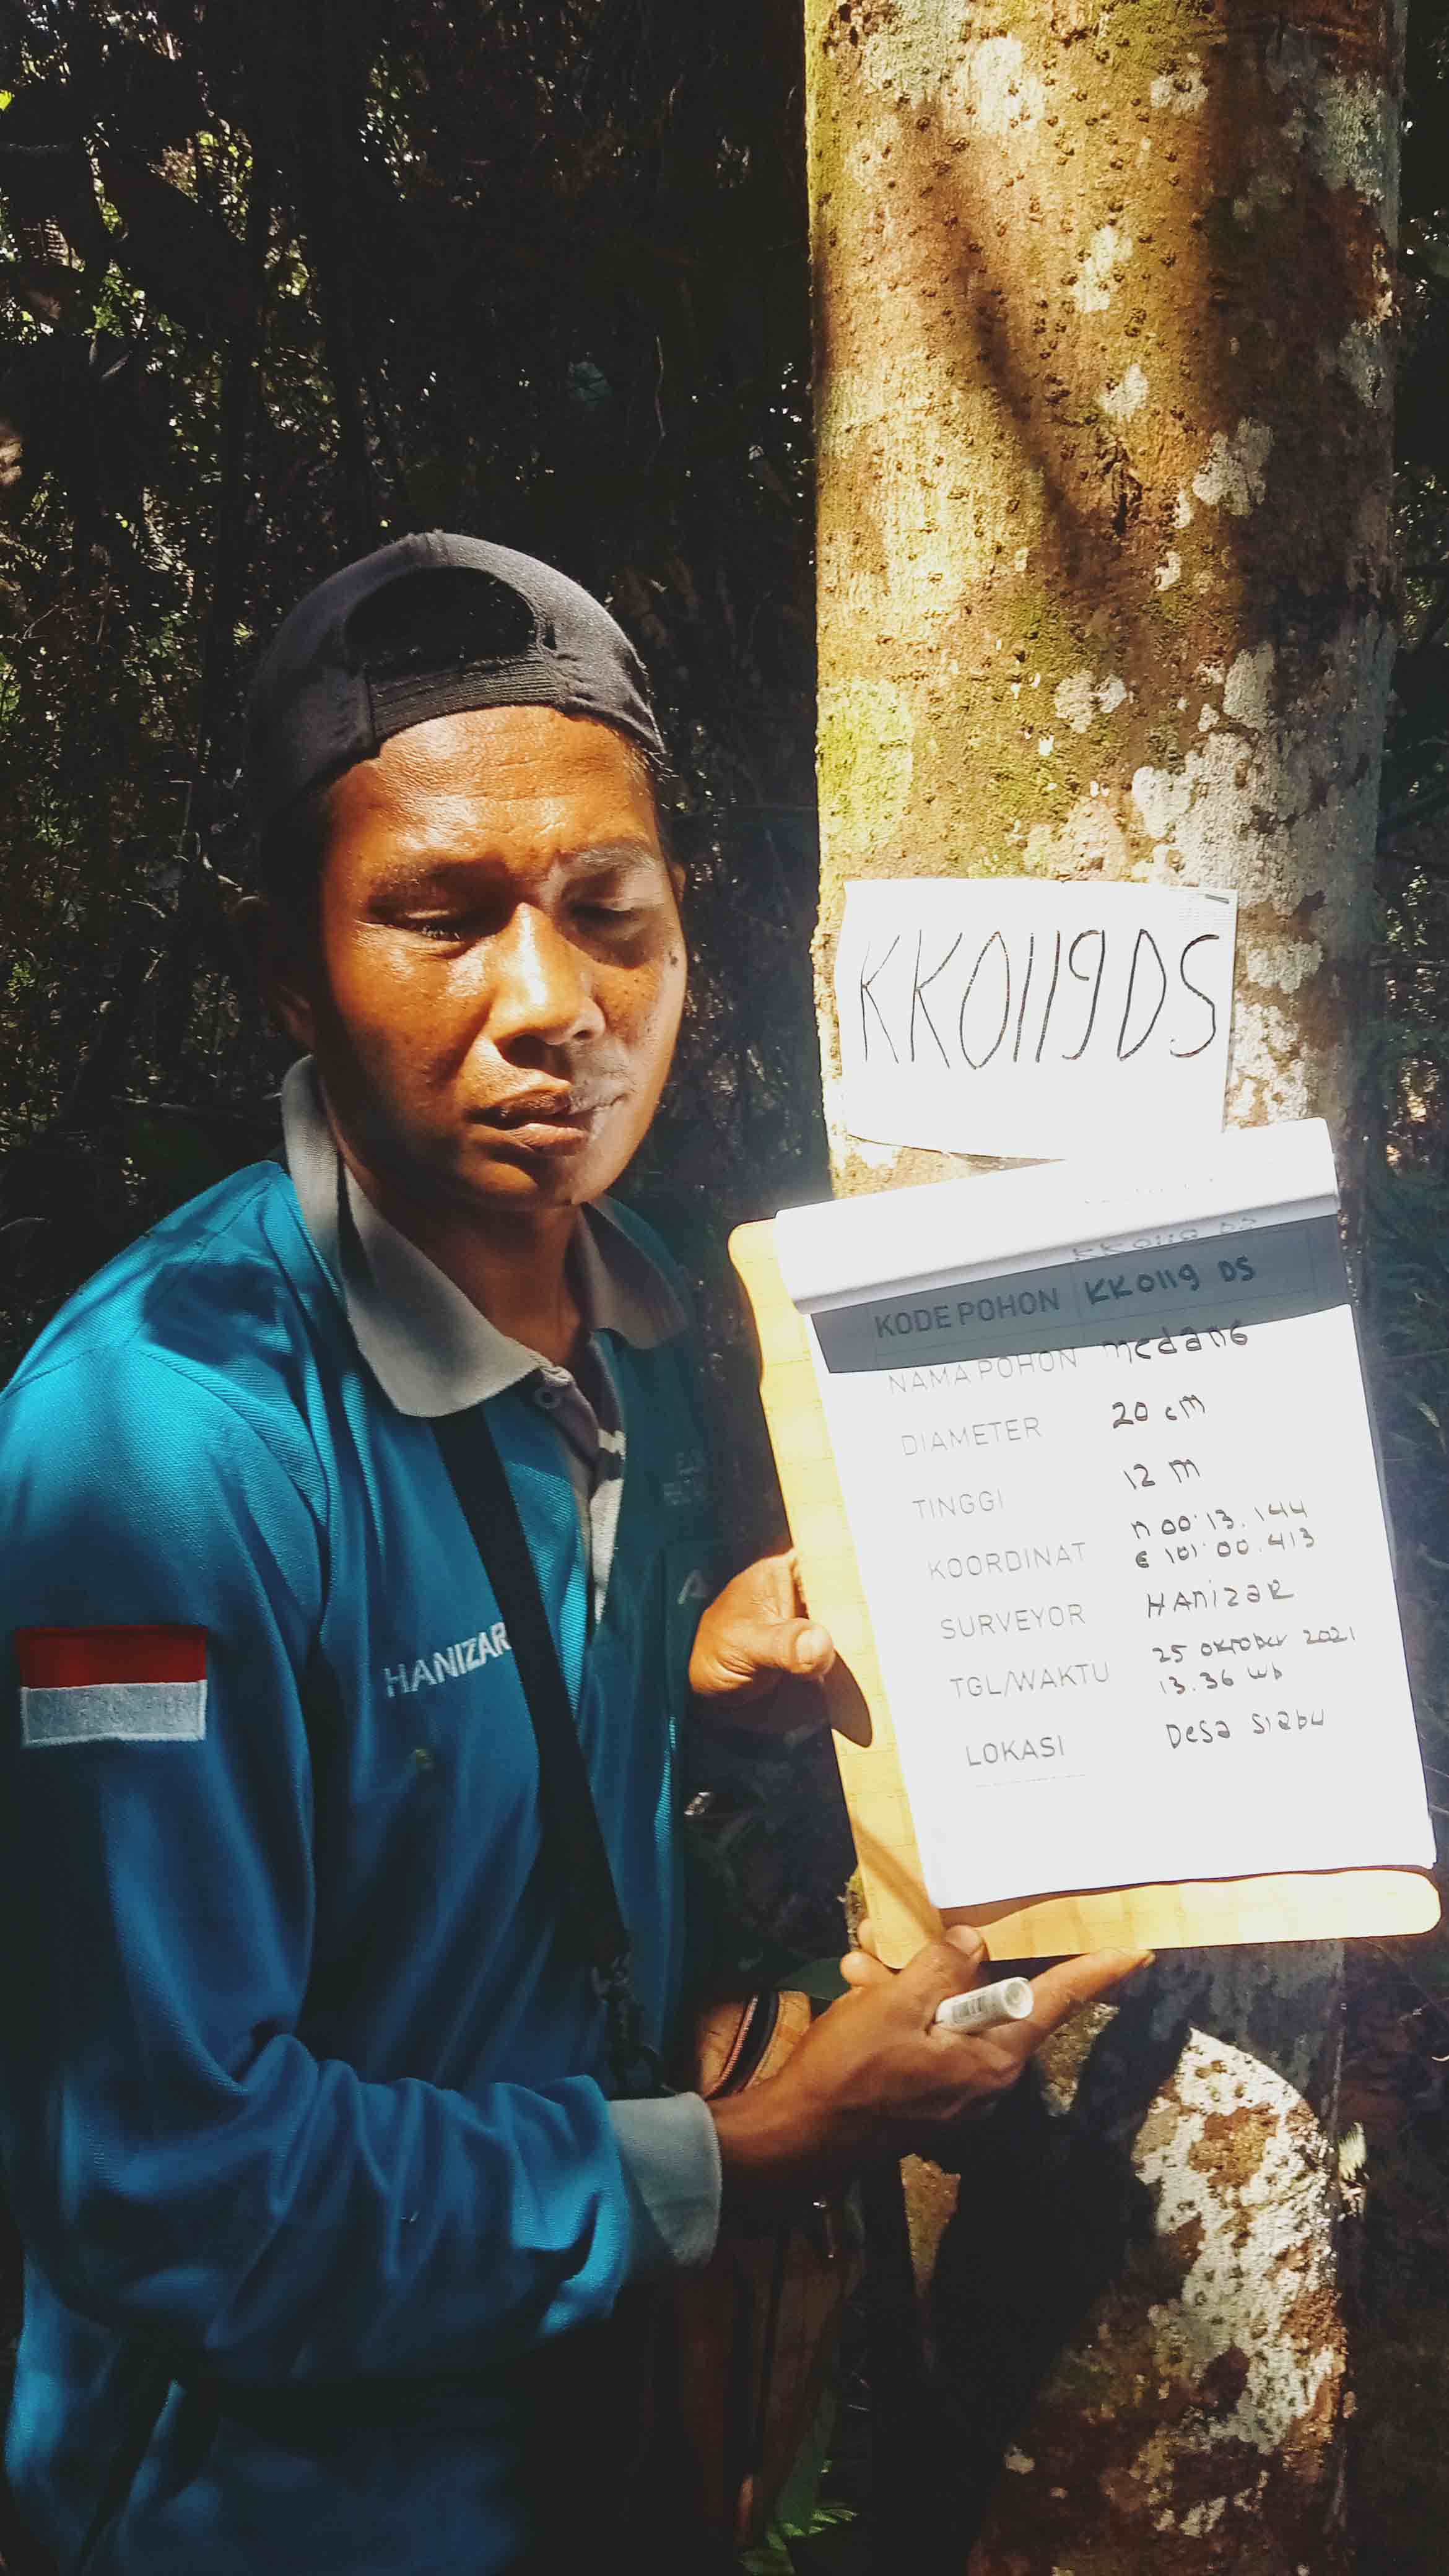 KK0119DS
KK0119 DS
KODE POHON KK0119 DS
NAMA POHON medang
DIAMETER 20 cm
TINGGI 12 m
KOORDINAT N 00°13.144
E 101°00.413
SURVEYOR HANizaR
TGL/WAKTU 25 oktober 2021
13.36 wb
LOKASI Desa siabu
HANIZAR